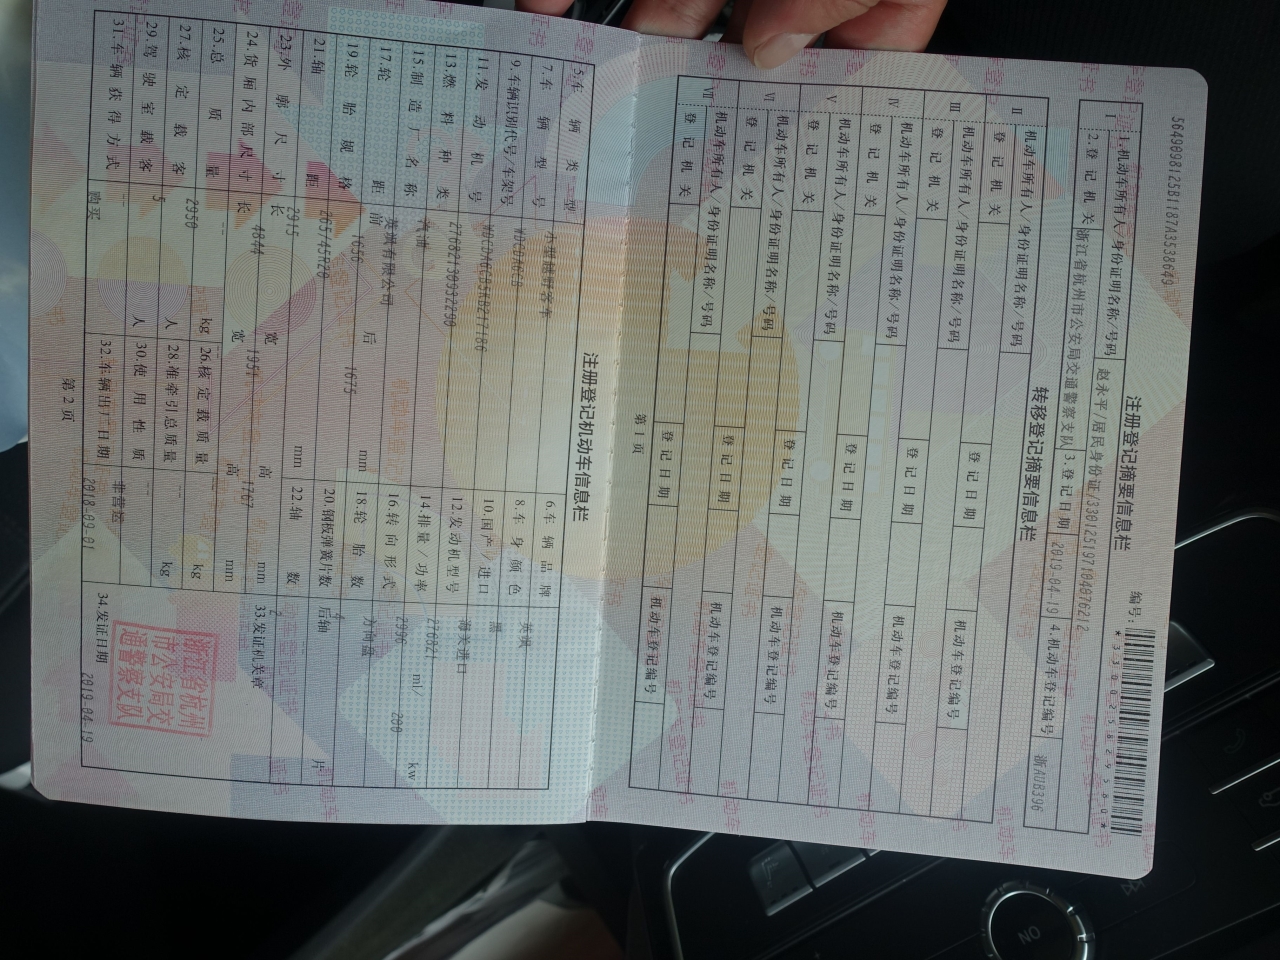 564909812581187A3538649
注册登记摘要信息栏
编号:
I 1.机动车所有人/身份证明名称/号码 赵永平/居民身份证/330125197104076212
2.登记机关 浙江省杭州市公安局交通警察支队 3.登记日期 2019-04-19 4.机动车登记编号 浙AU8396
转移登记摘要信息栏
II 机动车所有人/身份证明名称/号码
登记机关 登记日期 机动车登记编号
III 机动车所有人/身份证明名称/号码
登记机关 登记日期 机动车登记编号
IV 机动车所有人/身份证明名称/号码
登记机关 登记日期 机动车登记编号
V 机动车所有人/身份证明名称/号码
登记机关 登记日期 机动车登记编号
VI 机动车所有人/身份证明名称/号码
登记机关 登记日期 机动车登记编号
VII 机动车所有人/身份证明名称/号码
登记机关 登记日期 机动车登记编号
第1页
注册登记机动车信息栏
5.车辆类型 小型越野客车 6.车辆品牌 英枫
7.车辆型号 8.车身颜色 黑
9.车辆识别代号/车架号 10.国产/进口 海关进口
11.发动机号 27682130932290 12.发动机型号 276821
13.燃料种类 汽油 14.排量/功率 2996 ml/ 280 kw
15.制造厂名称 英枫有限公司 16.转向形式 方向盘
17.轮距 前 1656 后 1675 mm 18.轮胎数 4
19.轮胎规格 265/45R20 20.钢板弹簧片数 后轴 片
21.轴距 2915 mm 22.轴数 2
23.外廓尺寸 长 4844 宽 1951 高 1767 mm 33.发证机关章
24.货厢内部尺寸 长 -- 宽 -- 高 mm
25.总质量 2950 kg 26.核定载质量 -- kg
27.核定载客 5 人 28.准牵引总质量 -- kg
29.驾驶室载客 -- 人 30.使用性质 非营运
31.车辆获得方式 购买 32.车辆出厂日期 2018-09-01 34.发证日期 2019-04-19
浙江省杭州
市公安局交
通警察支队
第2页
ON